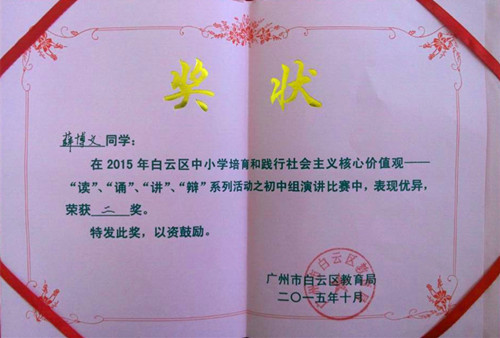 奖状
薛博文同学：
在2015年白云区中小学培育和践行社会主义核心价值观——
“读”、“诵”、“讲”、“辩”系列活动之初中组演讲比赛中，表现优异，
荣获 二 奖。
特发此奖，以资鼓励。
广州市白云区教育局
二〇一五年十月